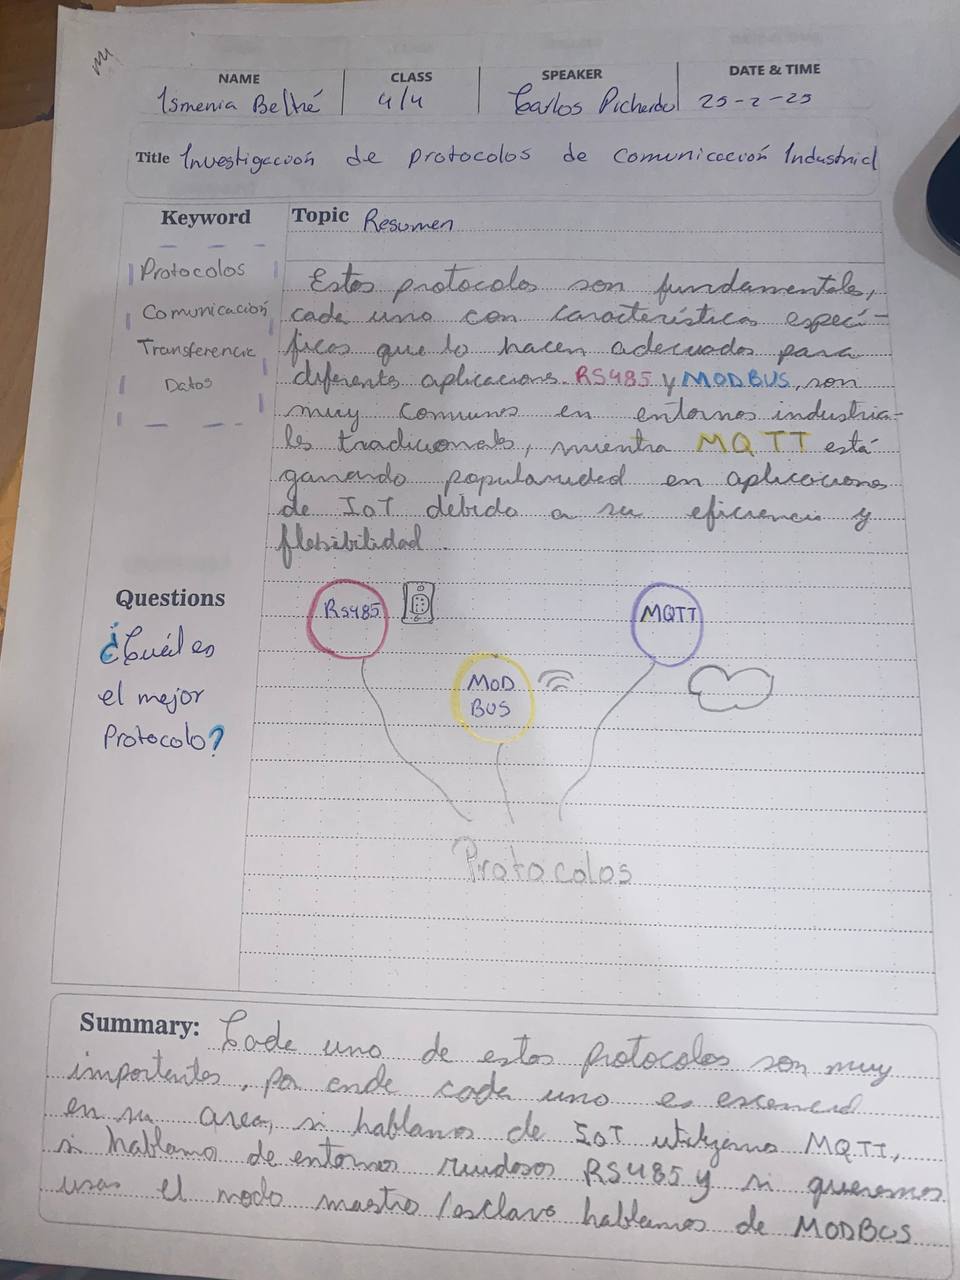 NAME
CLASS
SPEAKER
DATE & TIME
Ismenia Beltré
4/4
Carlos Pichardo
25-2-25
Title Investigación de protocolos de comunicación Industrial
Keyword
Protocolos
Comunicación
Transferencia
Datos
Topic Resumen
Estos protocolos son fundamentales,
cada uno con característicos especí-
ficos que lo hacen adecuados para
diferents aplicacions. RS485 y MODBUS, son
muy comunes en entornos industria-
les tradicionals, mientra MQTT está
ganando popularidad en aplicaciones
de IoT debido a su eficiencia y
flexibilidad.
Questions
¿Cuál es
el mejor
Protocolo?
RS485
MOD
BUS
MQTT
Protocolos
Summary: Cada uno de estos protocolos son muy
importantes, por ende cada uno es escencial
en su area, si hablamos de IoT utilizamos MQTT,
si hablamo de entornos ruidosos RS485 y si queremos
usar el modo mastro/esclavo hablamos de MODBUS